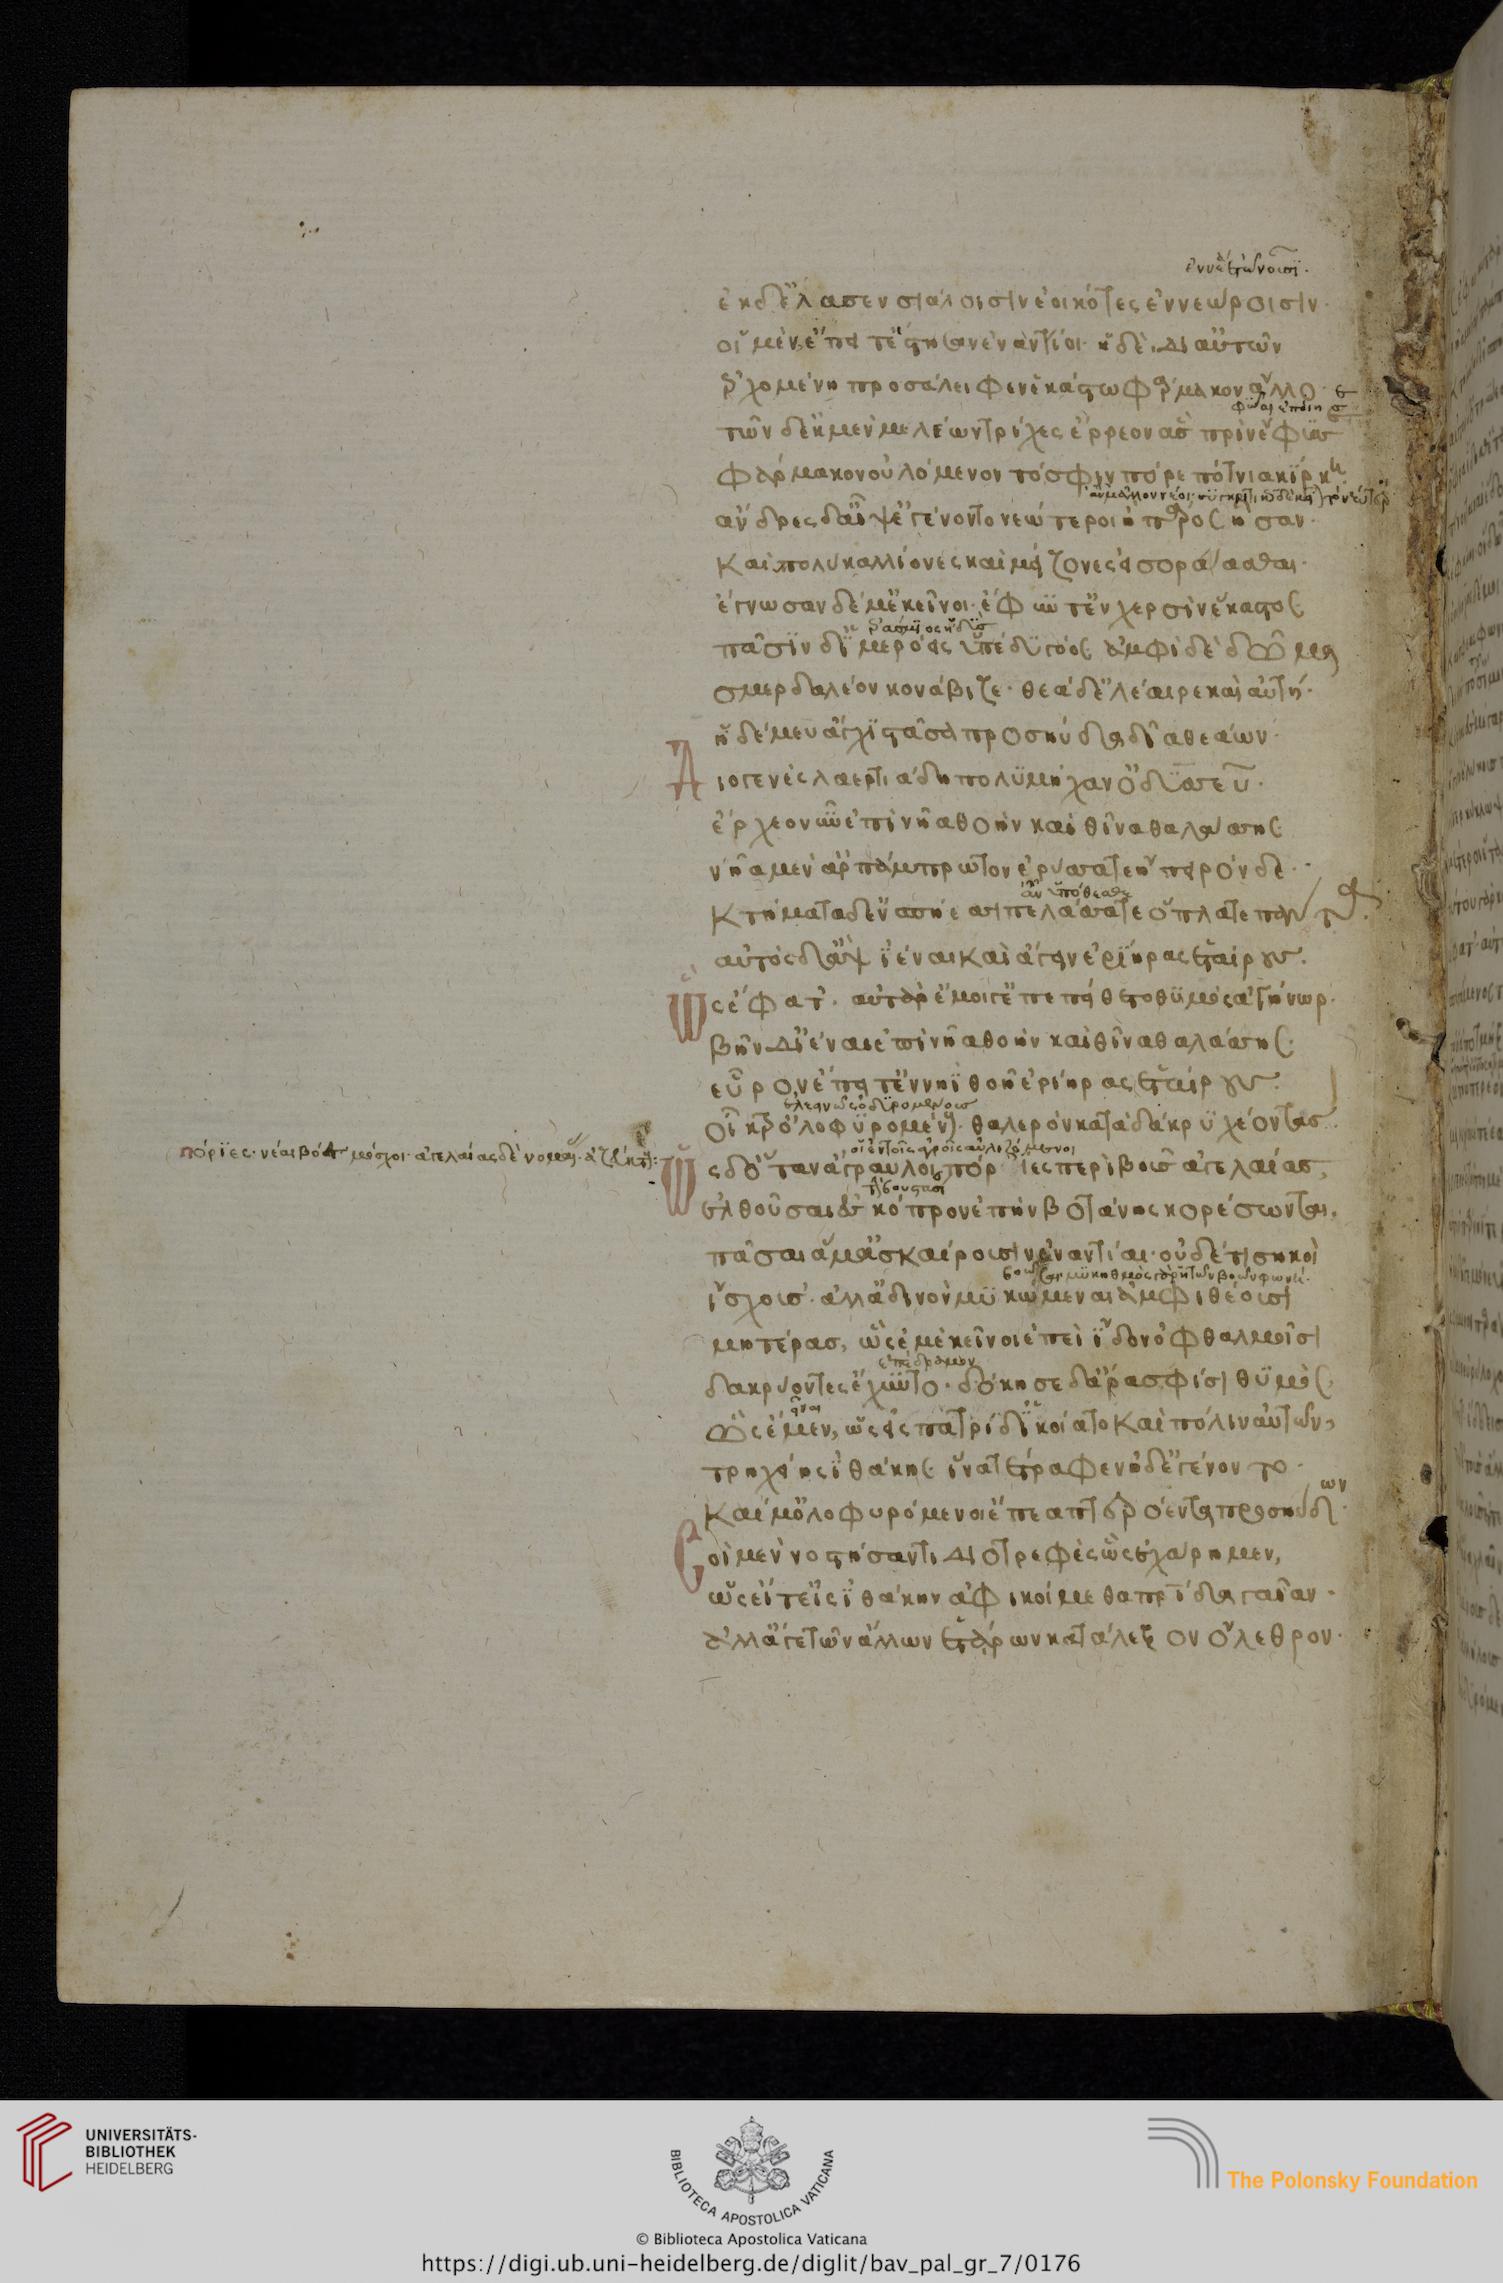 ἐννέα ἐτῶν οὖσι.
ἐκ δ' ἔλασεν σιάλοισιν ἐοικότες ἐννεώροισιν·
οἱ μὲν ἔπειτ' ἔστησαν ἐναντίοι· ἡ δὲ δι' αὐτῶν
ἐρχομένη προσάλειφεν ἑκάστω φάρμακον ἄλλο·
φῦσαι ἐποίησε
τῶν δ' ἐκ μὲν μελέων τρίχες ἔρρεον ἃς πρὶν ἔφυσε
φάρμακον οὐλόμενον τό σφιν πόρε πότνια κίρκη·
ἄνδρες δ' ἂψ ἐγένοντο νεώτεροι ἢ πάρος ἦσαν·
καὶ πολὺ καλλίονες καὶ μείζονες εἰσοράασθαι·
ἔγνωσαν δέ με κεῖνοι· ἔφυν τ' ἐν χερσὶν ἕκαστος
πᾶσιν δ' ἱμερόεις ὑπέδυ γόος ἀμφὶ δὲ δῶμα
σμερδαλέον κονάβιζε· θεὰ δ' ἐλέαιρε καὶ αὐτή·
ἡ δέ μευ ἄγχι στᾶσα προσηύδα δῖα θεάων·
Διογενὲς λαερτιάδη πολυμήχαν' ὀδυσσεῦ·
ἔρχεο νῦν ἐπὶ νῆα θοὴν καὶ θῖνα θαλάσσης
νῆα μὲν ἂρ πάμπρωτον ἐρύσσατε ἤπειρόνδε·
ὑπόθεσθε
κτήματα δ' ἐν σπήεσσι πελάσσατε ὅπλα τε πάντα.
αὐτὸς δ' ἂψ ἰέναι καὶ ἄγειν ἐρίηρας ἑταίρους.
Ὣς ἔφατ'· αὐτὰρ ἔμοιγ' ἐπεπείθετο θυμὸς ἀγήνωρ·
βῆν δ' ἰέναι ἐπὶ νῆα θοὴν καὶ θῖνα θαλάσσης·
εὗρον ἔπειτ' ἐν νηὶ θοῇ ἐρίηρας ἑταίρους·
ἐλεεινῶς ὀδυρομένους
οἴκτρ' ὀλοφυρομένους· θαλερὸν κατὰ δάκρυ χέοντας·
πόριες· νέαι βόες μόσχοι· ἀγελαίας δὲ νομάδας· ἀζεύκτους:
οἱ ἐν τοῖς ἀγροῖς αὐλιζόμενοι
Ὡς δ' ὅταν ἄγραυλοι πόριες περὶ βοῦς ἀγελαίας,
ἐλθούσας ἐς κόπρον ἐπὴν βοτάνης κορέσωνται,
πᾶσαι ἅμα σκαίρουσιν ἐναντίαι· οὐδ' ἔτι σηκοὶ
ἴσχουσ'· ἀλλ' ἁδινὸν μυκώμεναι ἀμφιθέουσι
μητέρας, ὣς ἐμὲ κεῖνοι ἐπεὶ ἴδον ὀφθαλμοῖσι
ἐπέδραμον
δακρυόντες ἔχυντο· δόκησε δ' ἄρα σφίσι θυμὸς
εἶναι
ὣς ἔμεν, ὡς εἰς πατρίδ' ἱκοίατο καὶ πόλιν αὐτῶν,
τρηχείης ἰθάκης ἵνα τ' ἔτραφεν ἠδ' ἐγένοντο·
καί μ' ὀλοφυρόμενοι ἔπεα πτερόεντα προσηύδων·
Σοὶ μὲν νοστήσαντι διοτρεφὲς ὣς ἐχάρημεν,
ὡς εἴ τ' εἰς ἰθάκην ἀφικοίμεθα πατρίδα γαῖαν·
ἀλλ' ἄγε τῶν ἄλλων ἑτάρων κατάλεξον ὄλεθρον·
UNIVERSITÄTS-
BIBLIOTHEK
HEIDELBERG
BIBLIOTECA APOSTOLICA VATICANA
The Polonsky Foundation
© Biblioteca Apostolica Vaticana
https://digi.ub.uni-heidelberg.de/diglit/bav_pal_gr_7/0176